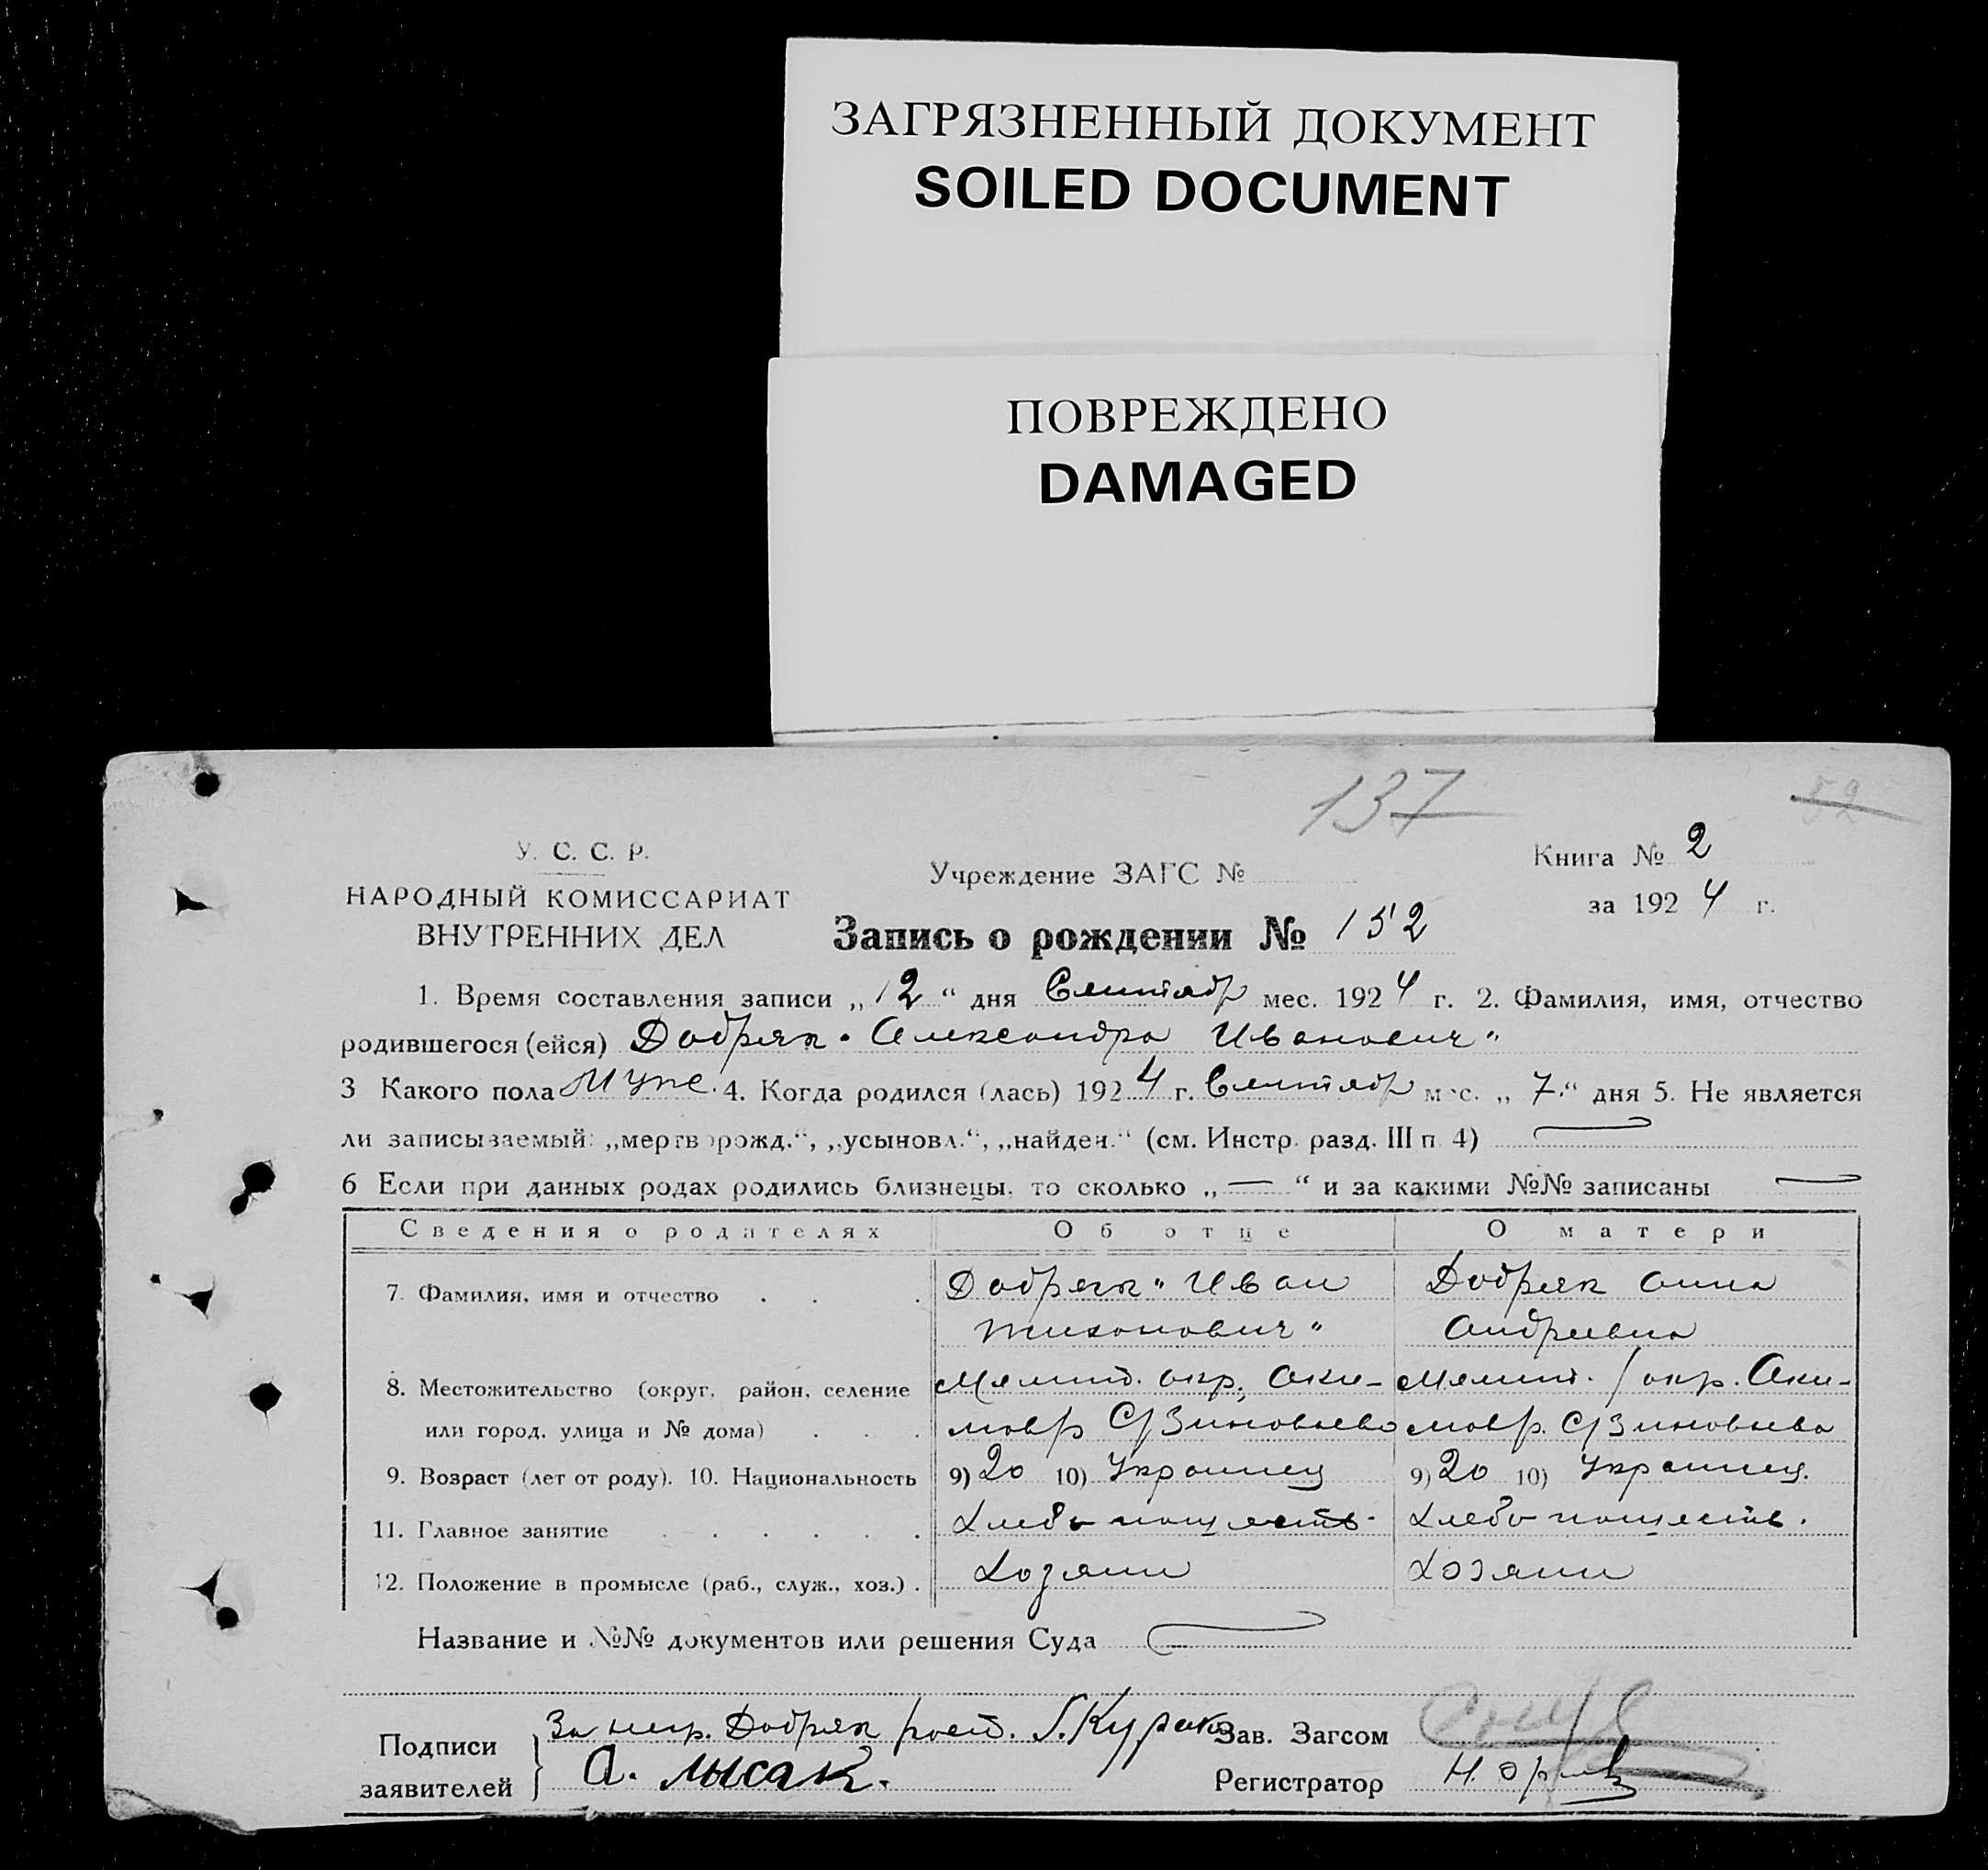 ЗАГРЯЗНЕННЫЙ ДОКУМЕНТ
SOILED DOCUMENT
ПОВРЕЖДЕНО
DAMAGED
137
52
У. С. С. Р.
НАРОДНЫЙ КОМИССАРИАТ
ВНУТРЕННИХ ДЕЛ
Учреждение ЗАГС №
Книга № 2
за 1924 г.
Запись о рождении № 152
1. Время составления записи „12“ дня Сентябр мес. 1924 г. 2. Фамилия, имя, отчество
родившегося (ейся) Добряк. Александра Иванович"
3 Какого пола Муже. 4. Когда родился (лась) 1924 г. Сентябр мес. „7.“ дня 5. Не является
ли записываемый: „мертворожд.“, „усыновл.“, „найден.“ (см. Инстр. разд. III п. 4) —
6 Если при данных родах родились близнецы, то сколько „—“ и за какими №№ записаны —
Сведения о родителях Об отце О матери
7. Фамилия, имя и отчество . . . Добряк" Иван Добряк Анна
Тихонович" Андреевна
8. Местожительство (округ, район, селение Мелит. окр., Аки- Мелит. / окр. Аки-
или город, улица и № дома) . . . мовр С/Зиновьево мовр. С/Зиновьево
9. Возраст (лет от роду). 10. Национальность 9) 20 10) Украинец 9) 20 10) Украинец.
11. Главное занятие . . . . . . Хлебопашеств. Хлебопашеств.
12. Положение в промысле (раб., служ., хоз.) . Хозяин Хозяин
Название и №№ документов или решения Суда
Подписи
заявителей
За негр. Добряк росп. Курако
А. Лысак.
Зав. Загсом
Регистратор Н.